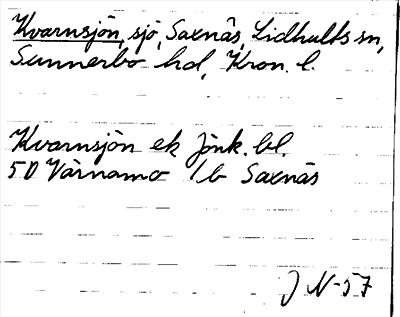 Kvarnsjön, sjö, Saxnäs, Lidhults sn,
Sunnerbo hd, Kron. l.
Kvarnsjön ek Jönk. bl.
50 Värnamo 1b Saxnäs
J N-57